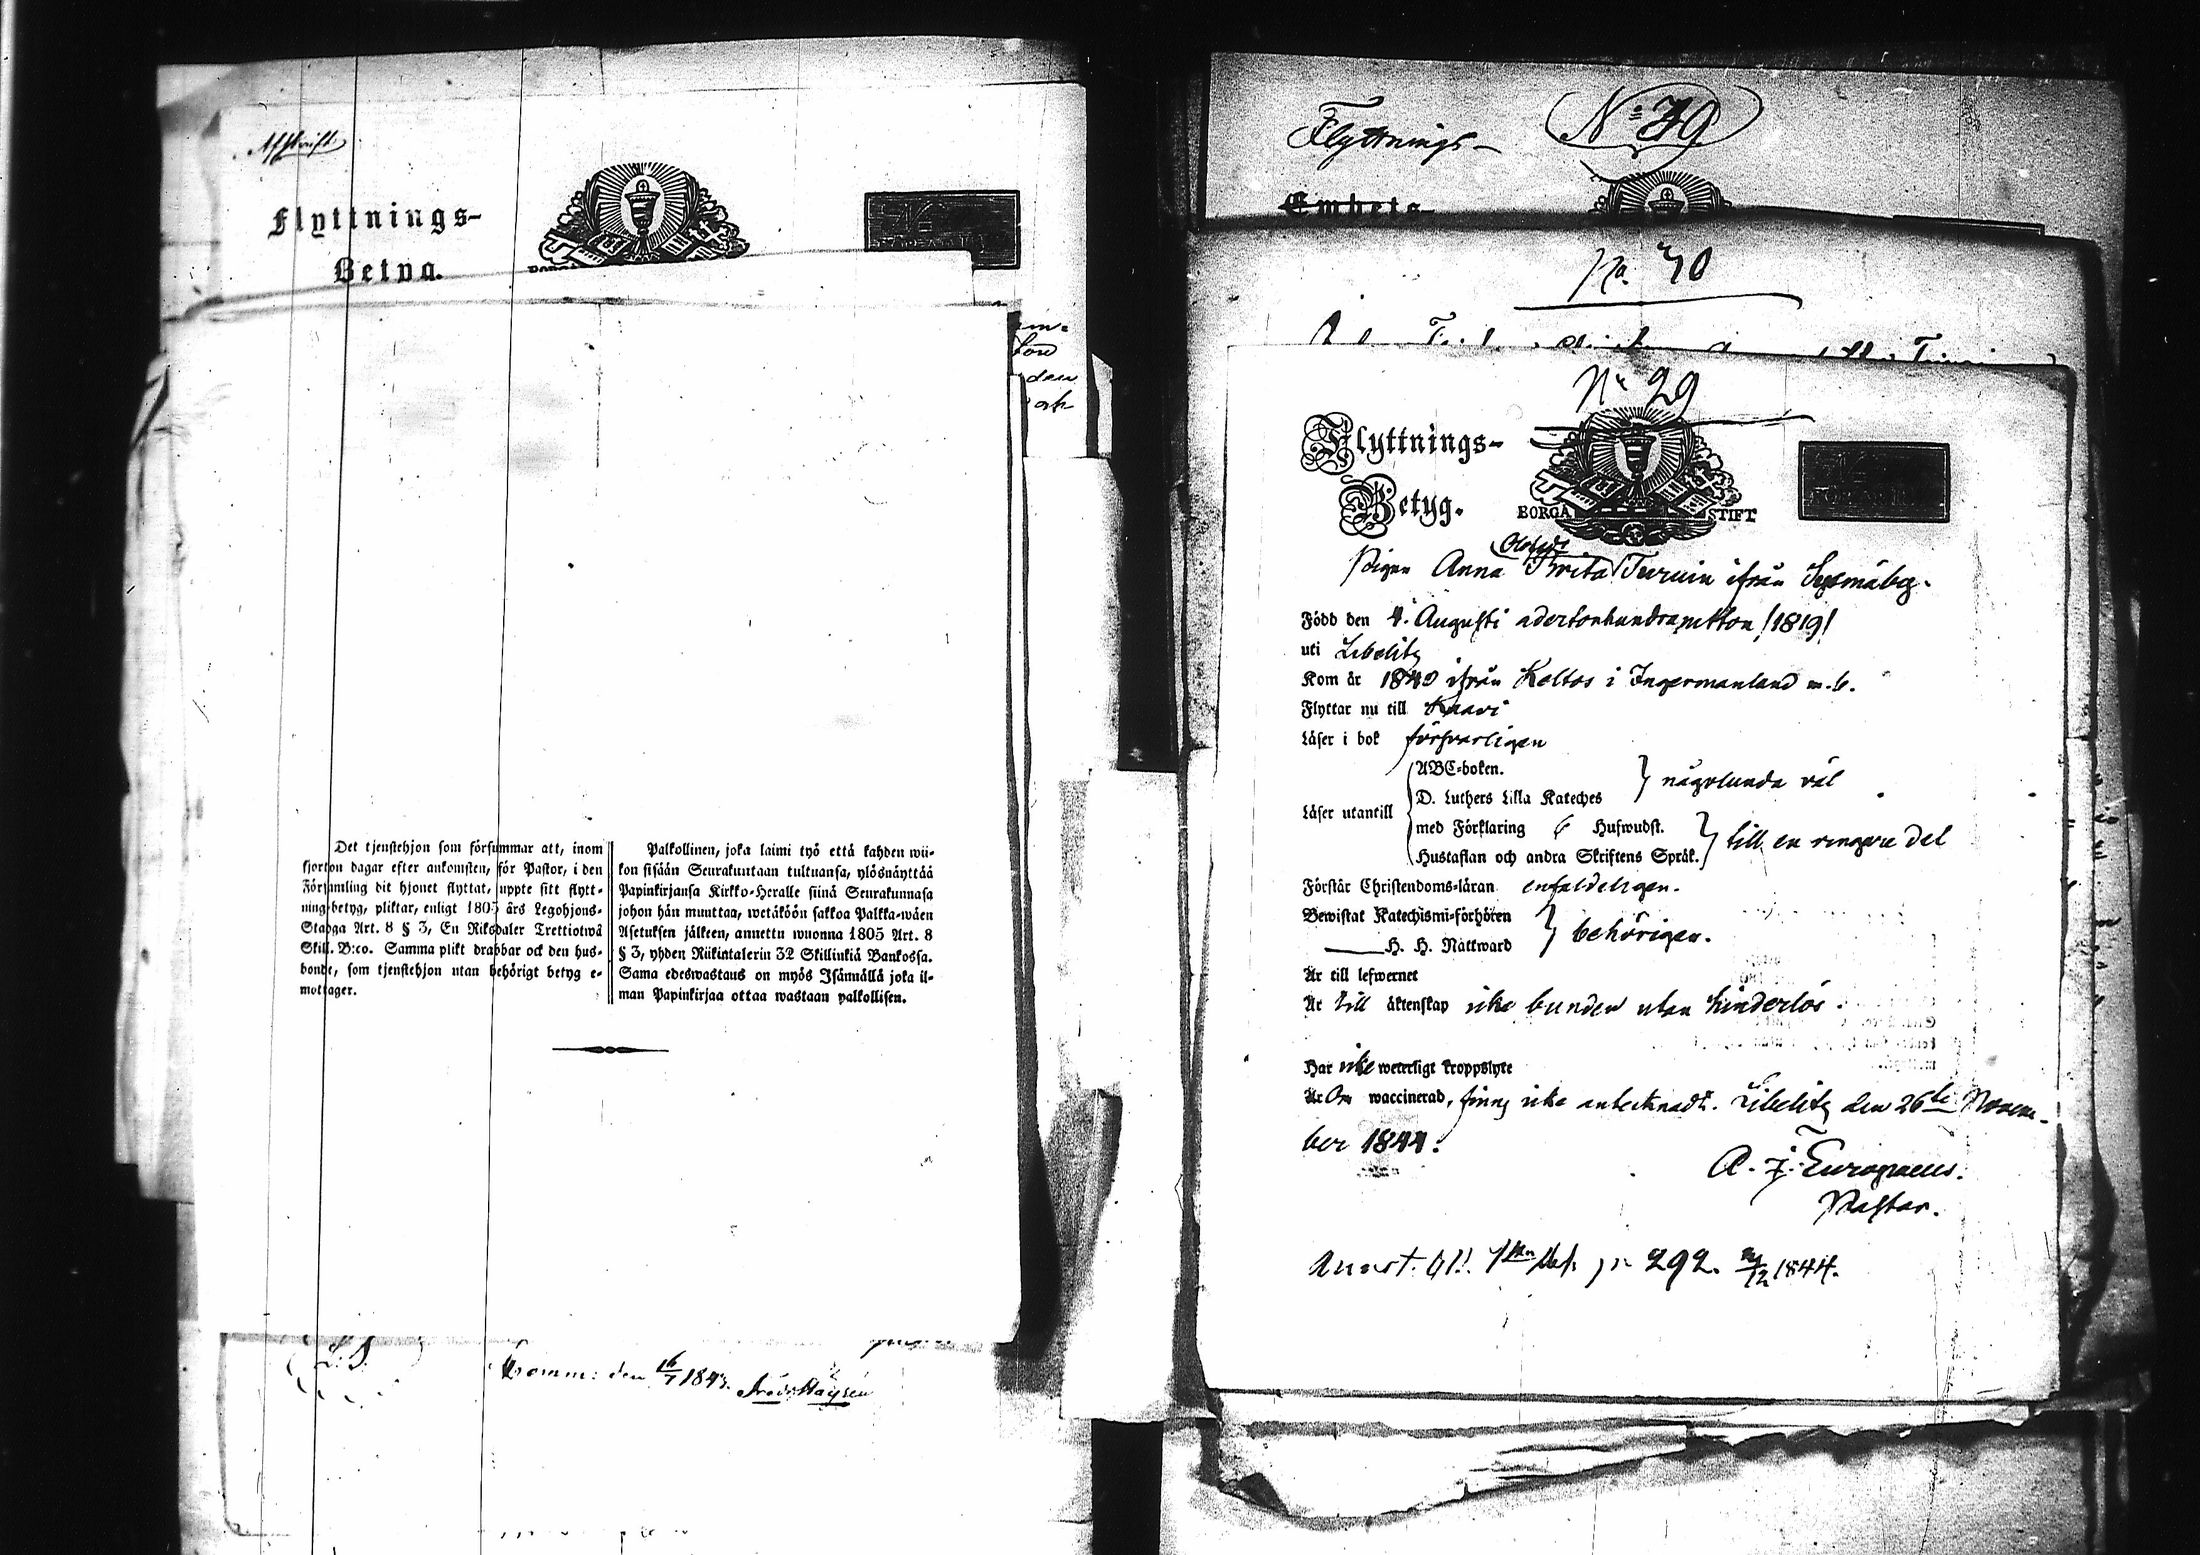 Afskrift
Flyttnings-
Betyg.
Det tjenstehjon som försummar att, inom
fjorton dagar efter ankomsten, för Pastor, i den
Församling dit hjonet flyttat, uppte sitt flytt-
ning-betyg, pliktar, enligt 1805 års Legohjons-
Stadga Art. 8 § 3, En Riksdaler Trettiotwå
Skill. B:co. Samma plikt drabbar ock den hus-
bonde, som tjenstehjon utan behörigt betyg e-
mottager.
Palkollinen, joka laimi työ että kahden wii-
kon sisään Seurakuntaan tultuansa, ylösnäyttää
Papinkirjansa Kirkko-Heralle siinä Seurakunnasa
johon hän muuttaa, wetäköön sakkoa Palkka-wäen
Asetuksen jälkeen, annettu wuonna 1805 Art. 8
§ 3, yhden Riikintalerin 32 Skillinkiä Bankossa.
Sama edeswastaus on myös Isännällä joka il-
man Papinkirjaa ottaa wastaan palkollisen.
L. S.
den 16/7 1843.
Flyttnings- No 39
Embets-
No. 30
No 29
Flyttnings-
Betyg.
BORGÅ STIFT
Pigan Anna Brita Turuin ifrån Sysmäby.
Född den 4. Augusti adertonhundranitton /1819/
uti Libelitz
Kom år 1840 ifrån Keltos i Ingermanland m. b.
Flyttar nu till Kaavi
Läser i bok försvarligen
Läser utantill
ABC-boken.
D. Luthers Lilla Kateches } någorlunda väl
med Förklaring 6 Hufwudst.
Hustaflan och andra Skriftens Språk. } till en ringare del
Förstår Christendoms-läran enfaldeligen.
Bewistat Katechismi-förhören
H. H. Nattward } behörigen.
Är till lefwernet
Är till äktenskap icke bunden utan hinderlös.
Har icke weterligt kroppslyte
Är Om waccinerad, finns icke antecknadt. Libelitz den 26te Novem-
ber 1844.
A. J. Europaeus.
Pastor.
Annot. 292. 2/12 1844.